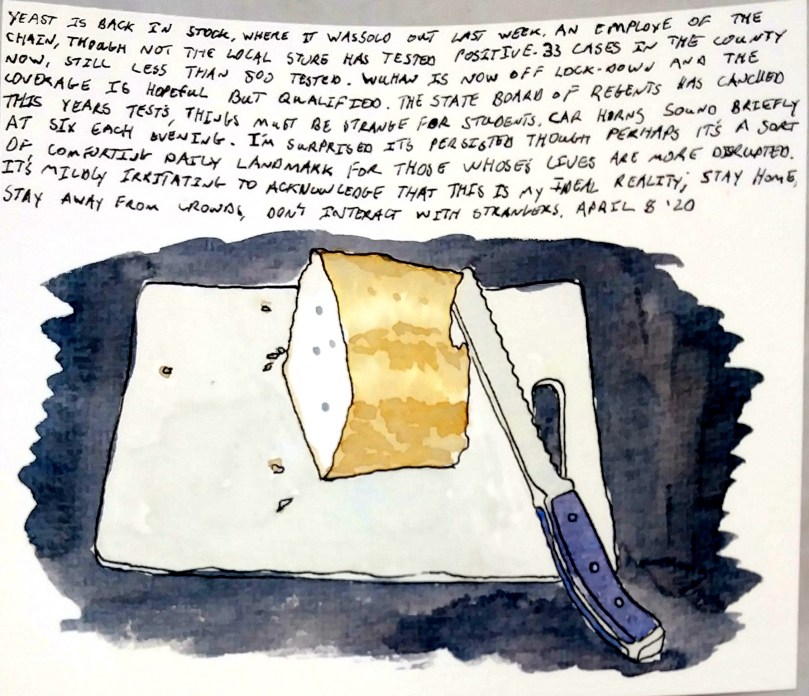 YEAST IS BACK IN STOCK, WHERE IT WASSOLD OUT LAST WEEK. AN EMPLOYE OF THE
CHAIN, THOUGH NOT THE LOCAL STORE HAS TESTED POSITIVE. 33 CASES IN THE COUNTY
NOW, STILL LESS THAN 500 TESTED. WUHAN IS NOW OFF LOCK-DOWN AND THE
COVERAGE IS HOPEFUL BUT QUALIFIED. THE STATE BOARD OF REGENTS HAS CANCLED
THIS YEARS TESTS, THINGS MUST BE STRANGE FOR STUDENTS. CAR HORNS SOUND BRIEFLY
AT SIX EACH EVENING. I'M SURPRISED ITS PERSISTED THOUGH PERHAPS IT'S A SORT
OF COMFORTING DAILY LANDMARK FOR THOSE WHOSE'S LIVES ARE MORE DISRUPTED.
IT'S MILDLY IRRITATING TO ACKNOWLEDGE THAT THIS IS MY IDEAL REALITY; STAY HOME,
STAY AWAY FROM CROWDS, DON'T INTERACT WITH STRANGERS. APRIL 8 '20